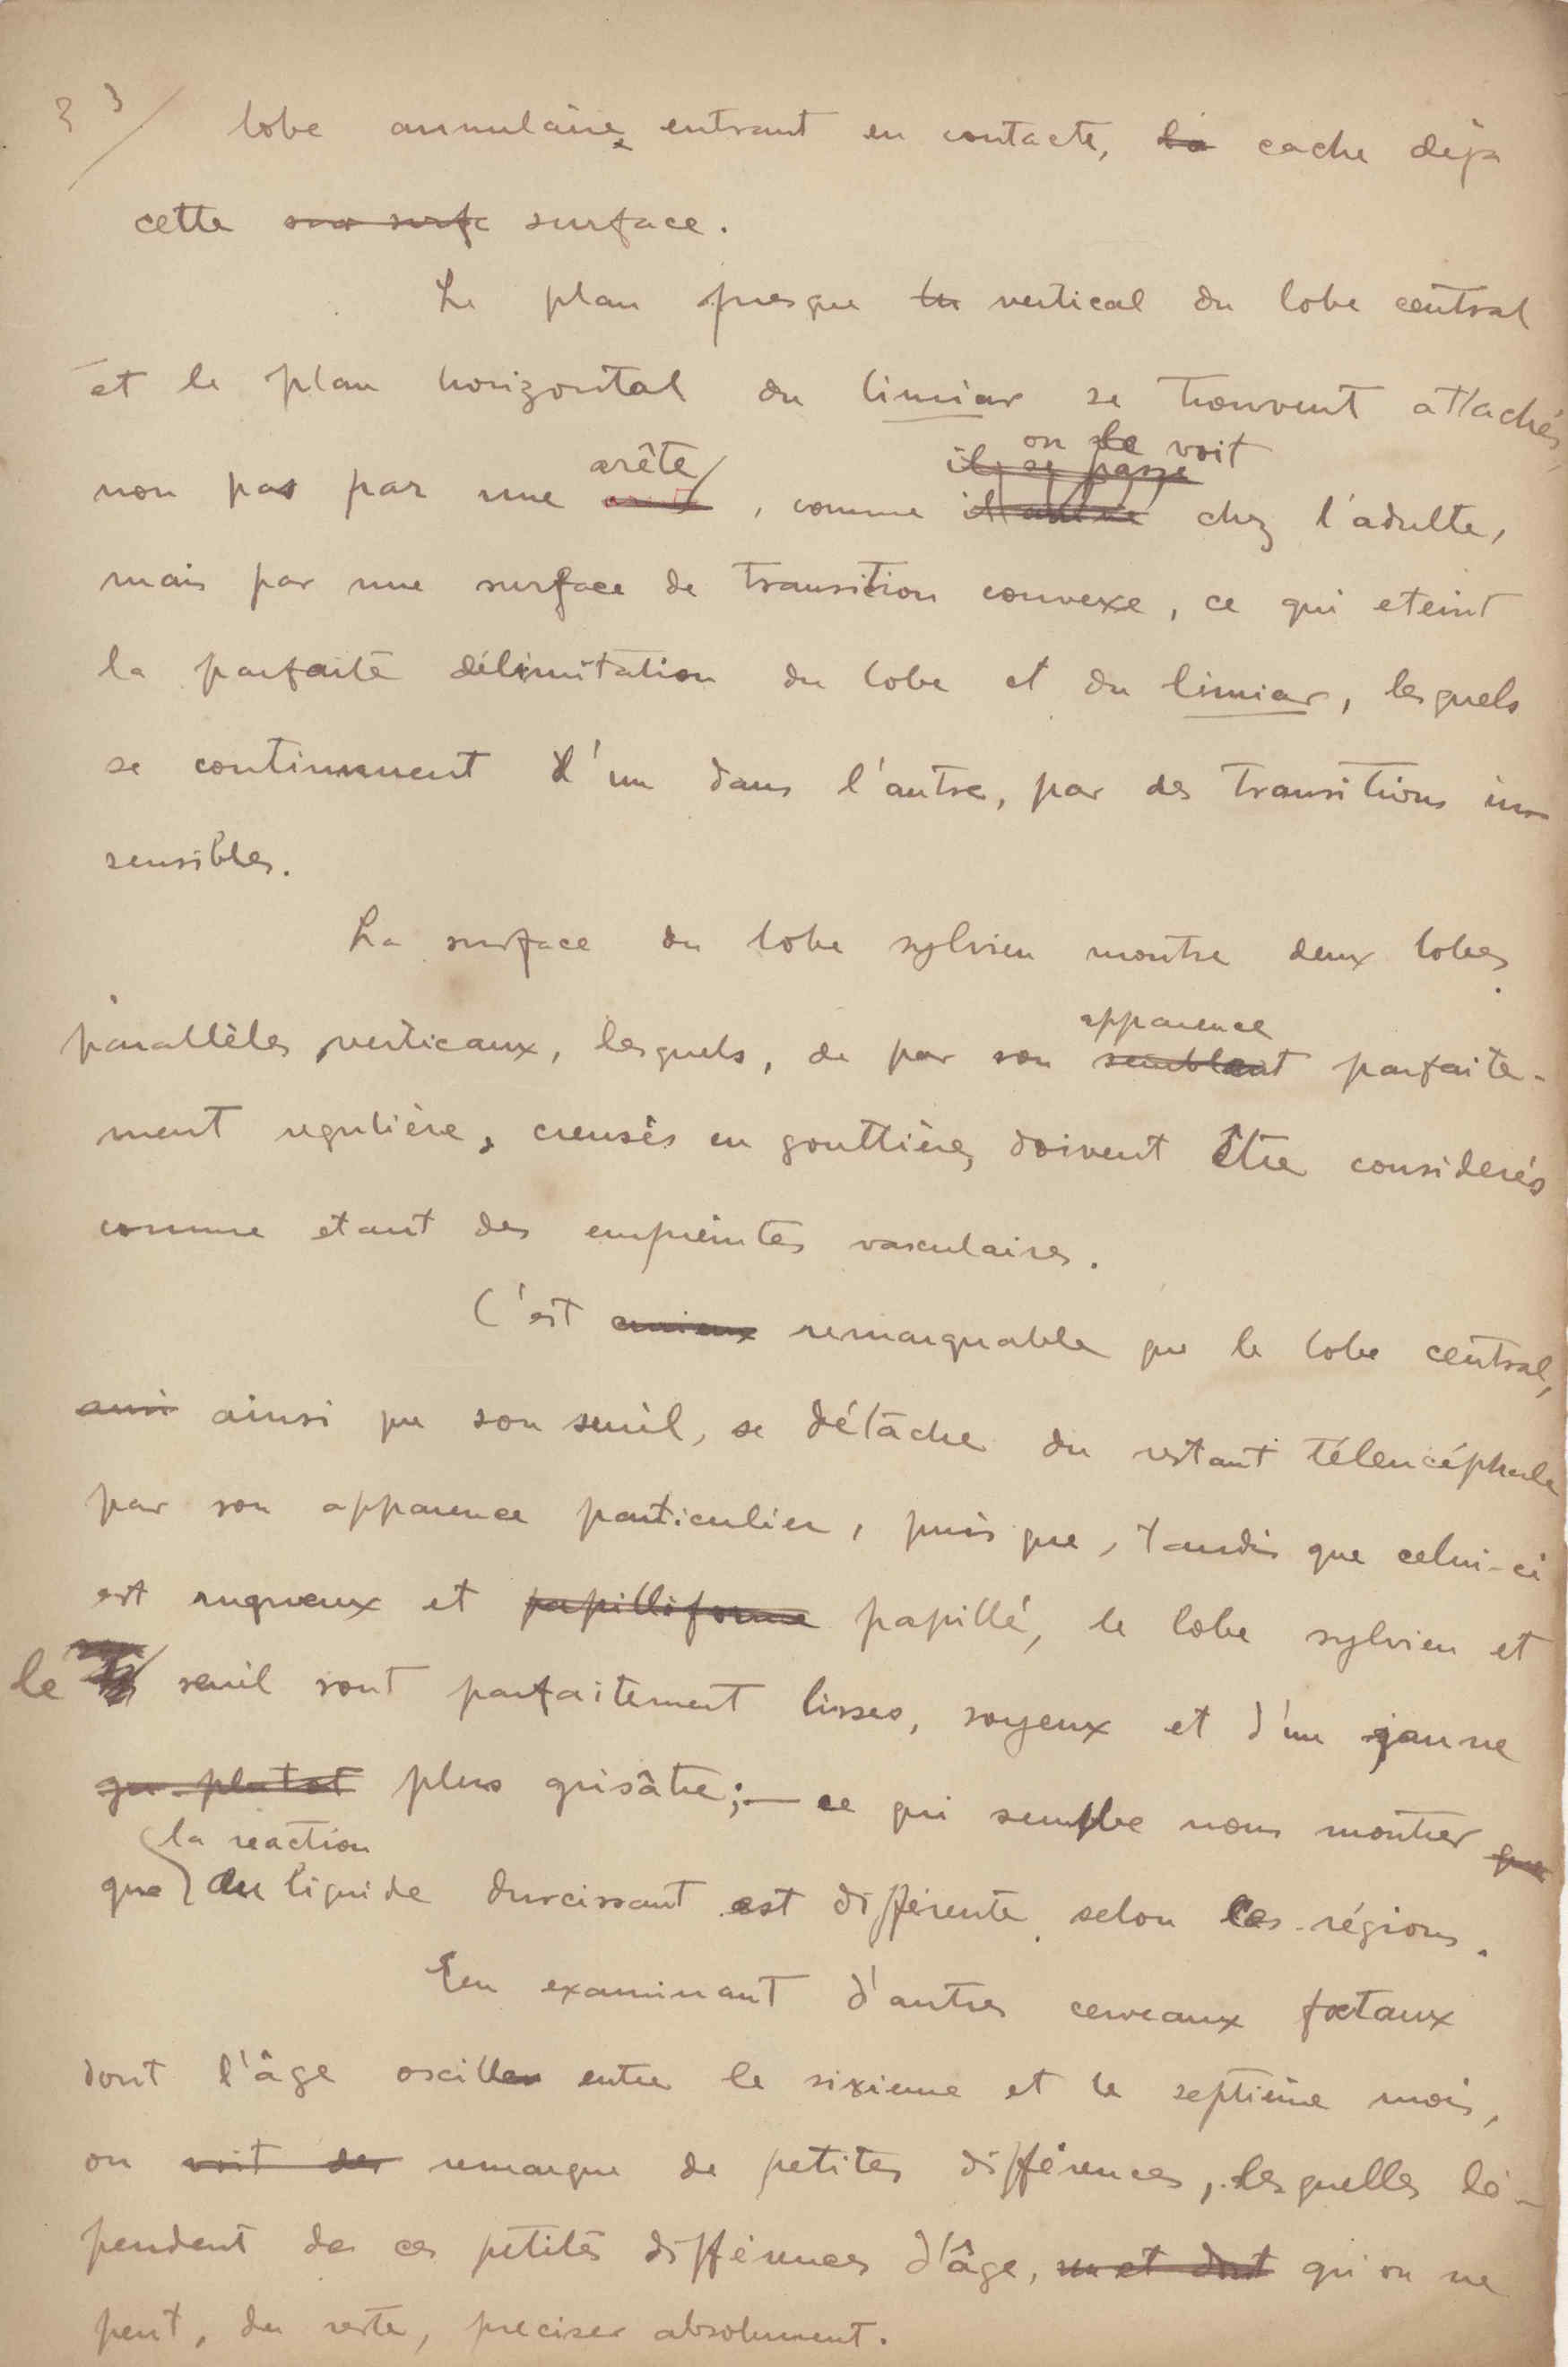 33/ lobe annulaire entrant en contacte, la cache déja
cette son surfc surface.
Le plan presque ver vertical du lobe central
et le plan horizontal du limiar se trouvent attachés,
arête on le voit
il se passe
non pas par une , comme chez l'adulte,
mais par une surface de transition convexe, ce qui eteint
la parfaite délimitation du lobe et du limiar, lesquels
se continuent l'un dans l'autre, par des transitions in-
sensibles.
La surface du lobe sylvien montre deux lobes
apparence
parallèles verticaux, lesquels, de par son semblent parfaite-
ment regulière, creusés en gouttière, doivent être considerés
comme etant des empreintes vasculaires.
C'est curieux remarquable que le lobe central,
ausi ainsi que son seuil, se détâche du restant télencéphale
par son apparence particulier, puis que, tandis que celui-ci
est rugueux et papilliforme papillé, le lobe sylvien et
le seuil sont parfaitement lisses, soyeux et d'un jaune
que plutot plus grisâtre;— ce qui semble nous montrer que
la reaction
que du liquide durcissant est différente selon les régions.
En examinant d'autres cerveaux fœtaux
dont l'âge oscille entre le sixieme et le septième mois,
on voit des remarque de petites différences, lesquelles dé-
pendent de ces petites différences d'âge, et dont qu'on ne
peut, du reste, preciser absolument.